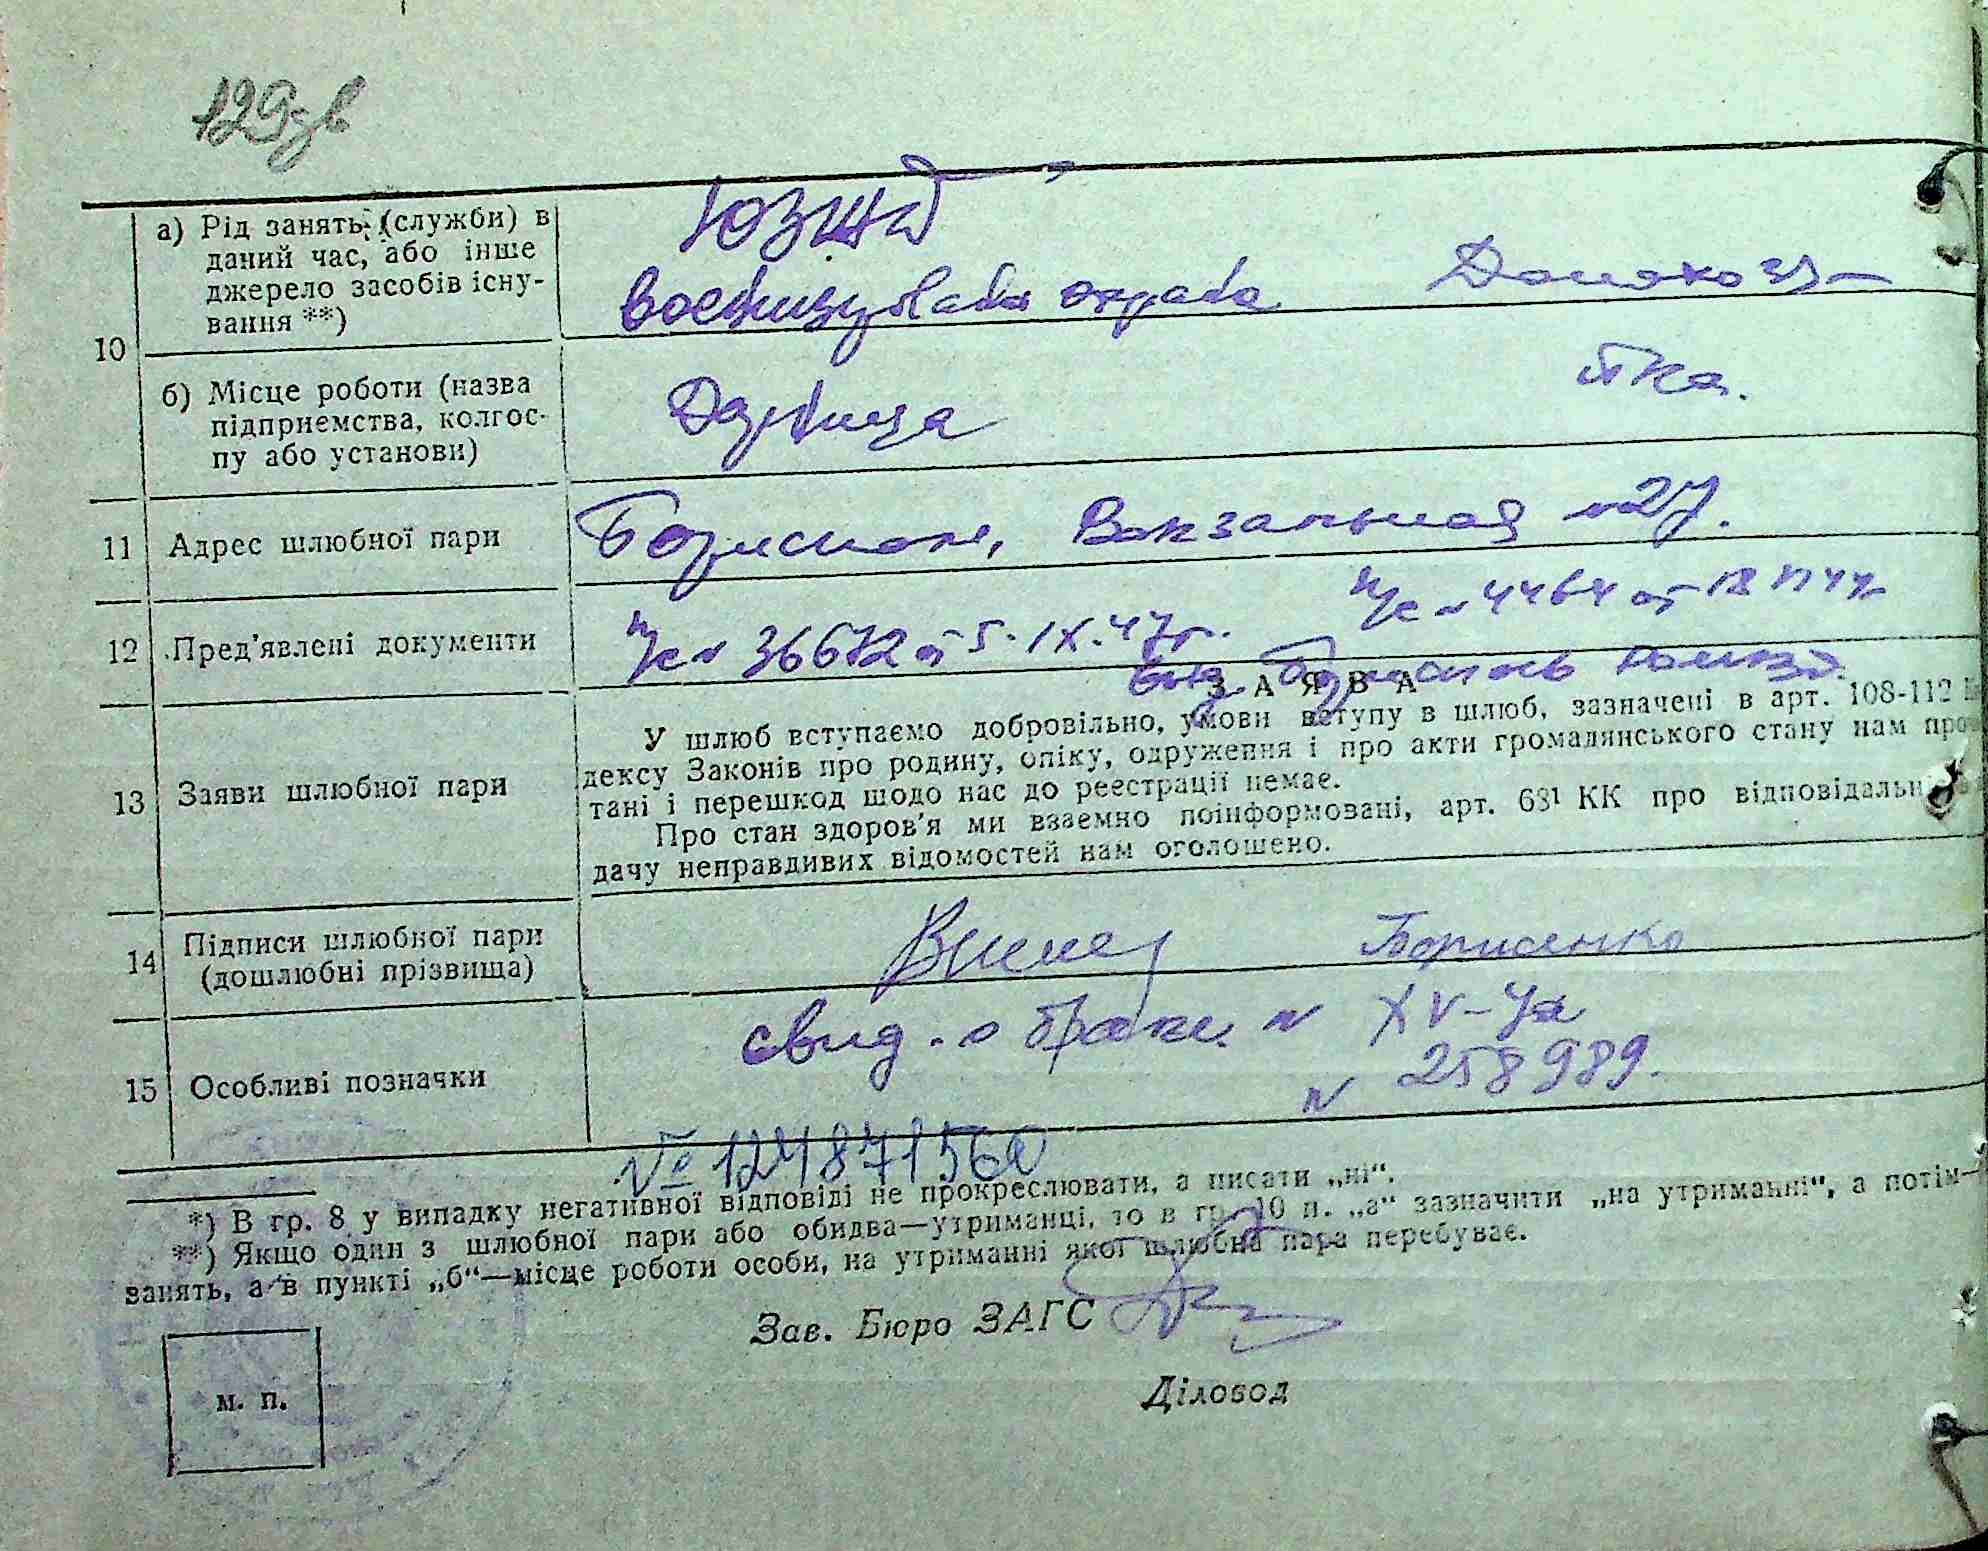 129зв
10 а) Рід занять (служби) в
даний час, або інше
джерело засобів існу-
вання **)
ЮЗЖД
охрана Домохозя-
йка.
б) Місце роботи (назва
підприємства, колгос-
пу або установи)
Дарница
11 Адрес шлюбної пари Борисполь, Вокзальная №27.
12 Пред'явлені документи п/с № 36672 от 5.IX.47г. п/с № 4464 от
выд. Борисполь
13 Заяви шлюбної пари
ЗАЯВА
У шлюб вступаємо добровільно, умови вступу в шлюб, зазначені в арт. 108-112
дексу Законів про родину, опіку, одруження і про акти громадянського стану нам про
тані і перешкод щодо нас до реєстрації немає.
Про стан здоров'я ми взаємно поінформовані, арт. 68¹ КК про відповідальн
дачу неправдивих відомостей нам оголошено.
14 Підписи шлюбної пари
(дошлюбні прізвища)
Борисенко
15 Особливі позначки
свид. о браке № XV-
№ 258989.
№ 124871560
*) В гр. 8 у випадку негативної відповіді не прокреслювати, а писати „ні“.
**) Якщо один з шлюбної пари або обидва—утриманці, то в гр. 10 п. „а“ зазначити „на утриманні“, а потім—
занять, а в пункті „б“—місце роботи особи, на утриманні якої шлюбна пара перебуває.
Зав. Бюро ЗАГС
Діловод
м. п.